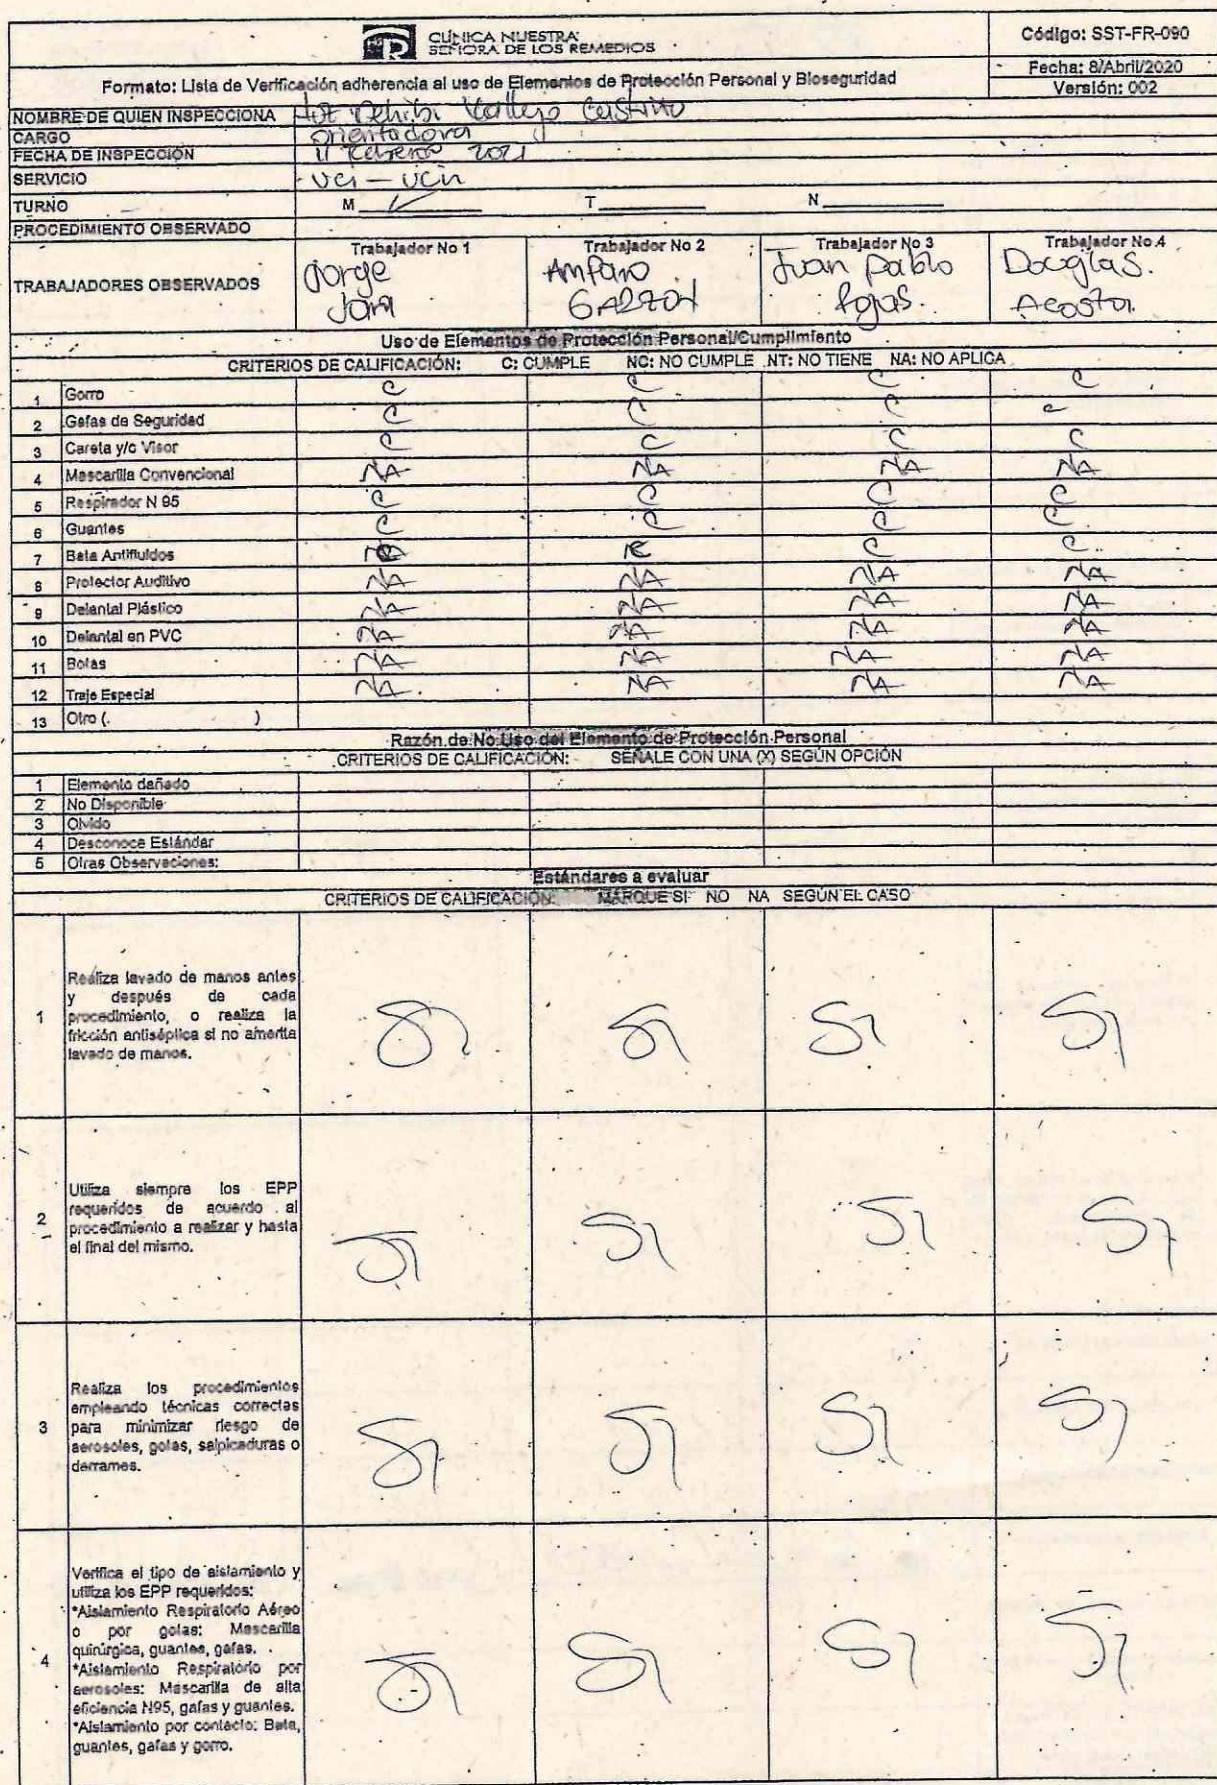 CLÍNICA NUESTRA
SEÑORA DE LOS REMEDIOS
Código: SST-FR-090
Formato: Lista de Verificación adherencia al uso de Elementos de Protección Personal y Bioseguridad
Fecha: 8/Abril/2020
Versión: 002
NOMBRE DE QUIEN INSPECCIONA Vallejo
CARGO orientadora
FECHA DE INSPECCIÓN 11 Febrero 2021
SERVICIO UCI - UCIN
TURNO M ✓ T N
PROCEDIMIENTO OBSERVADO
TRABAJADORES OBSERVADOS
Trabajador No 1 Trabajador No 2 Trabajador No 3 Trabajador No 4
Jorge Amparo Juan pablo Douglas.
Jara GARZON Rojas. Acosta.
Uso de Elementos de Protección Personal/Cumplimiento
CRITERIOS DE CALIFICACIÓN: C: CUMPLE NC: NO CUMPLE NT: NO TIENE NA: NO APLICA
1 Gorro C C C C
2 Gafas de Seguridad C C C C
3 Careta y/o Visor C C C C
4 Mascarilla Convencional NA NA NA NA
5 Respirador N 95 C C C C
6 Guantes C C C C
7 Bata Antifluidos C C C C
8 Protector Auditivo NA NA NA NA
9 Delantal Plástico NA NA NA NA
10 Delantal en PVC NA NA NA NA
11 Botas NA NA NA NA
12 Traje Especial NA NA NA NA
13 Otro ( )
Razón de No Uso del Elemento de Protección Personal
CRITERIOS DE CALIFICACIÓN: SEÑALE CON UNA (X) SEGÚN OPCIÓN
1 Elemento dañado
2 No Disponible
3 Olvido
4 Desconoce Estándar
5 Otras Observaciones:
Estándares a evaluar
CRITERIOS DE CALIFICACIÓN: MARQUE SI NO NA SEGÚN EL CASO
1
Realiza lavado de manos antes
y después de cada
procedimiento, o realiza la
fricción antiséptica si no amerita
lavado de manos.
SI SI SI SI
2
Utiliza siempre los EPP
requeridos de acuerdo al
procedimiento a realizar y hasta
el final del mismo.
SI SI SI SI
3
Realiza los procedimientos
empleando técnicas correctas
para minimizar riesgo de
aerosoles, gotas, salpicaduras o
derrames.
SI SI SI SI
4
Verifica el tipo de aislamiento y
utiliza los EPP requeridos:
*Aislamiento Respiratorio Aéreo
o por gotas: Mascarilla
quirúrgica, guantes, gafas.
*Aislamiento Respiratorio por
aerosoles: Mascarilla de alta
eficiencia N95, gafas y guantes.
*Aislamiento por contacto: Bata,
guantes, gafas y gorro.
SI SI SI SI